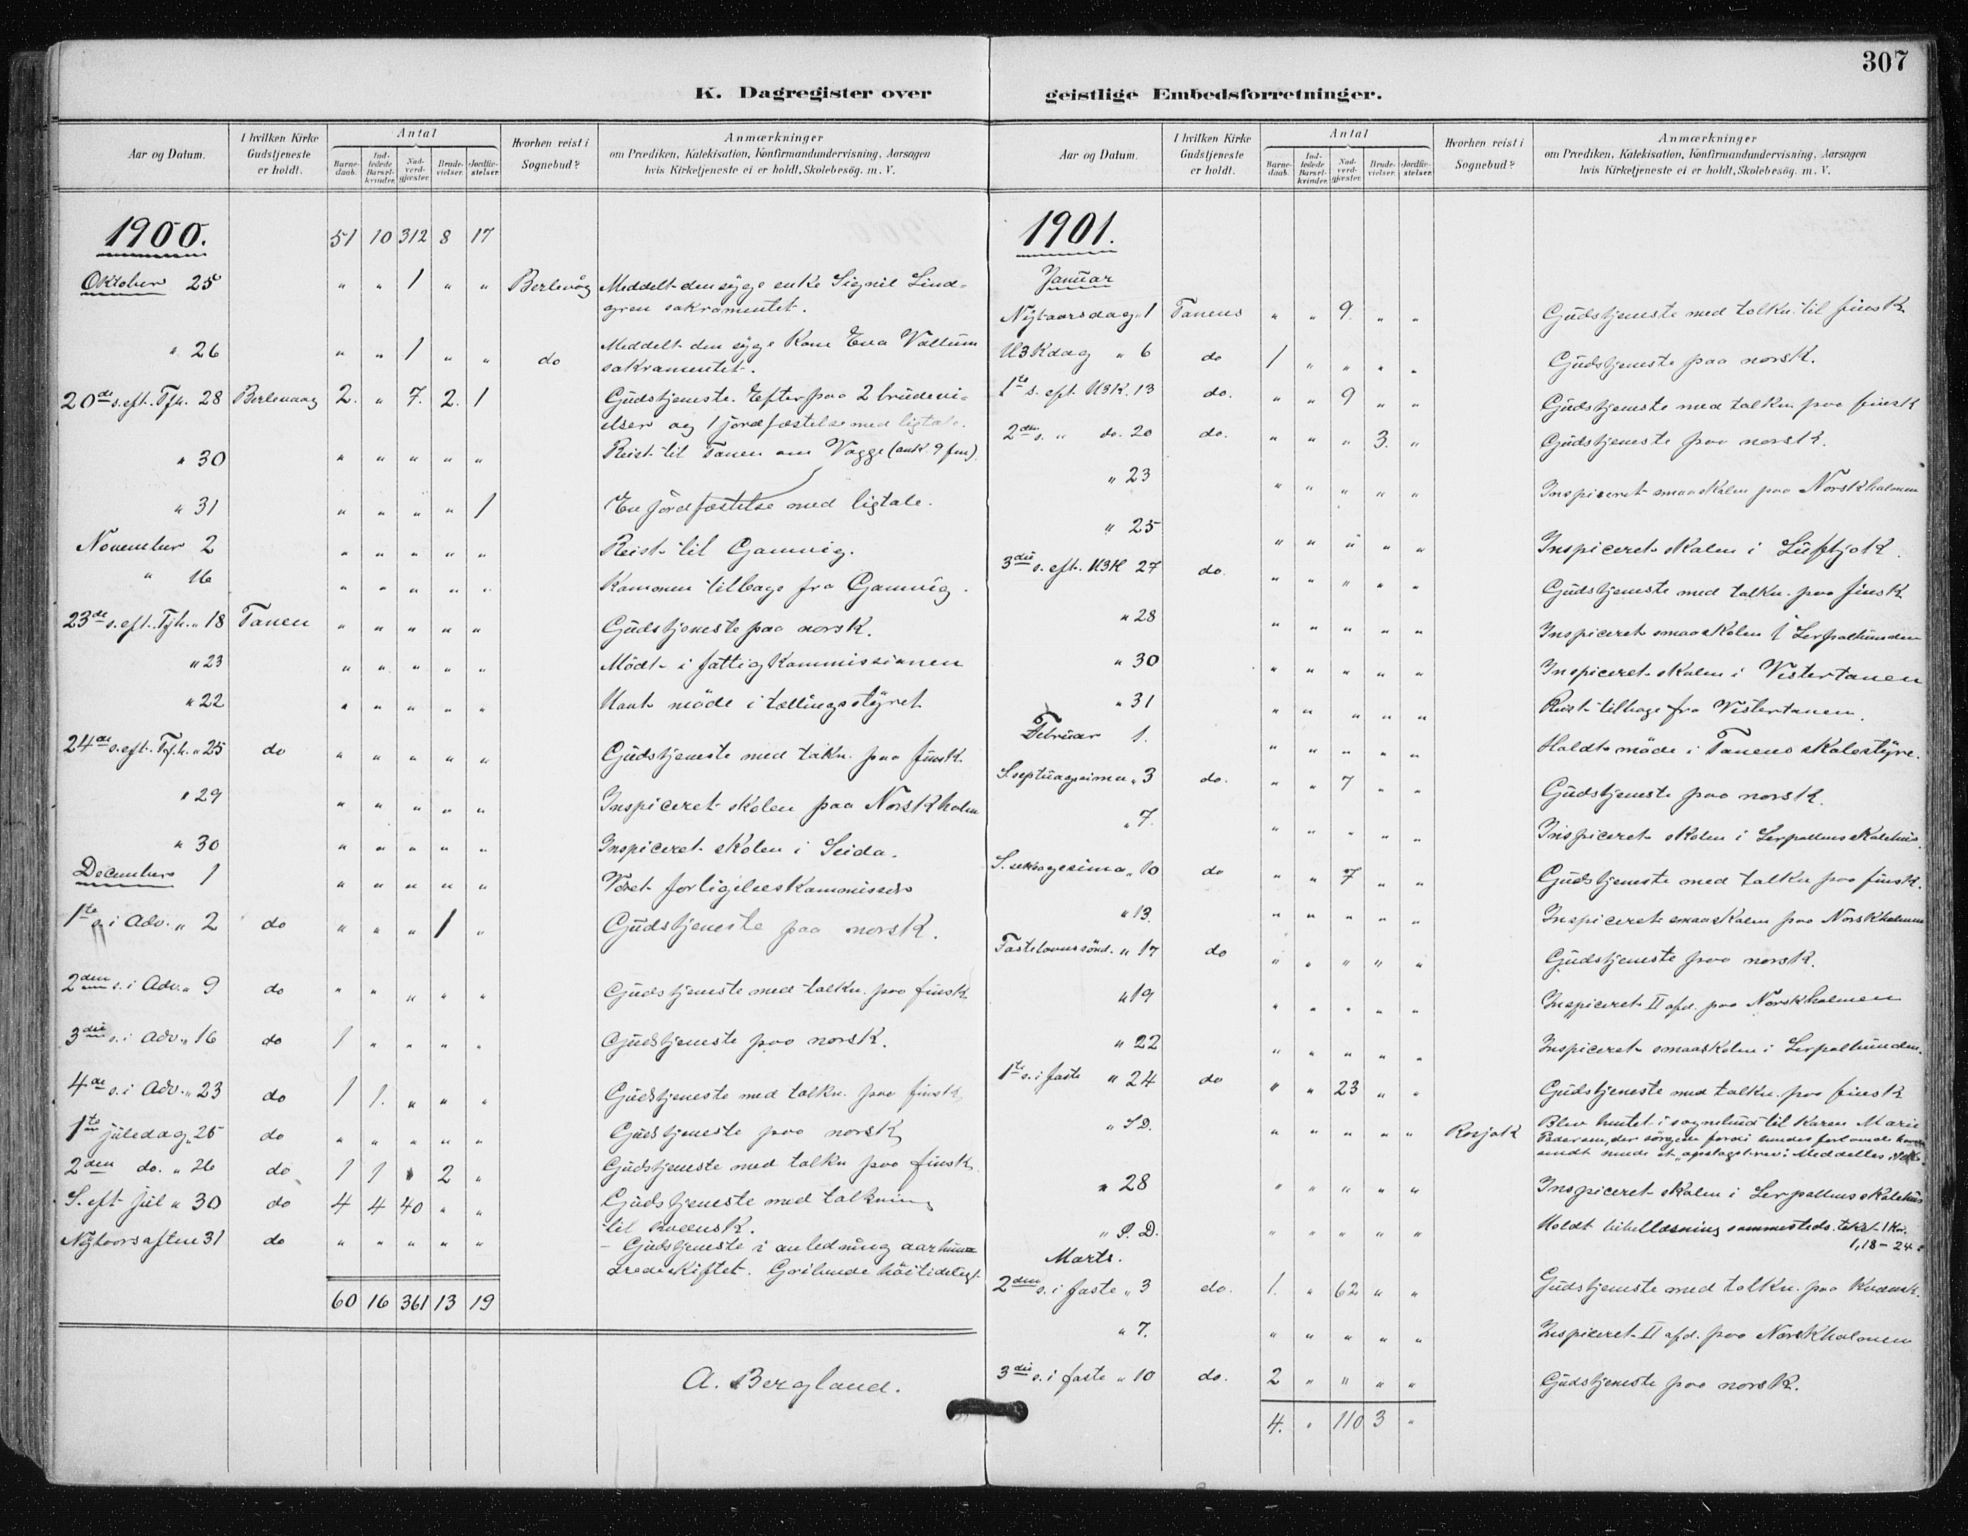 307
K. Dagregister over
Aar og Datum.
I hvilken Kirke Gudstjeneste er holdt.
Antal
Barnedaab.
Indledede Barselkvinder.
Nadverdgjæster.
Brudevielser.
Jordfæstelser.
Hvorhen reist i Sognebud?
Anmærkninger
om Prædiken, Katekisation, Konfirmandundervisning, Aarsagen
hvis Kirketjeneste ei er holdt, Skolebesøg. m. V.
1900. 51 10 312 8 17
Oktober 25 " " 1 " " Berlevåg Meddelt den syge enke Signil Lind-
gren sakramentet.
" 26 " " 1 " " do Meddelt den syge kone Eva
sakramentet.
20de s. eft. Tfh. 28 Berlevaag 2. " 7. 2. 1 Gudstjeneste. Efterpaa 2 brudevi-
elser og 1 jordfæstelse med ligtale.
" 30 " " " " " Reist til Tanen om Vagge (ank. 9 fm).
" 31 " " " " 1 En jordfæstelse med ligtale.
November 2 " " " " " Reist til Gamvig.
" 16 " " " " " Kommen tilbage fra Gamvig.
23de s. eft. Tfh. " 18 Tanen " " " " " Gudstjeneste paa norsk.
" 23 " " " " " Mödt i fattigkommissionen
" 22 " " " " " Havt möde i tællingsstyret
24de s. eft. Tfh. " 25 do " " " " " Gudstjeneste med tolkn. paa finsk.
" 29 " " " " " Inspiceret skolen paa Norskholm
" 30 " " " " " Inspiceret skolen i Seida.
December 1 " " " " " Været forligelseskommissær
1te s. i Adv. " 2 do " " " 1 " Gudstjeneste paa norsk.
2den s. i Adv. " 9 do " " " " " Gudstjeneste med tolkn. paa finsk
3die s. i Adv. " 16 do 1 " " " " Gudstjeneste paa norsk.
4de s. i Adv. " 23 do 1 1. " " " Gudstjeneste med tolkn. paa finsk
1te juledag " 25 do " " " " " Gudstjeneste paa norsk
2den do. " 26 do 1 1 " 2 " Gudstjeneste med tolkn paa finsk.
S. eft jul " 30 do 4 4 40 " " Gudstjeneste med tolkning
til kvænsk.
Nytaarsaften 31 do " " " " " – Gudstjeneste i anledning aarhun-
dredeskiftet. Gribende höitidelegt.
60 16 361 13 19
A. Bergland.
geistlige Embedsforretninger.
Aar og Datum.
I hvilken Kirke Gudstjeneste er holdt.
Antal
Barnedaab.
Indledede Barselkvinder.
Nadverdgjæster.
Brudevielser.
Jordfæstelser.
Hvorhen reist i Sognebud?
Anmærkninger
om Prædiken, Katekisation, Konfirmandundervisning, Aarsagen
hvis Kirketjeneste ei er holdt, Skolebesøg. m. V.
1901.
Januar
Nytaarsdag " 1 Tanens " " 9. " " Gudstjeneste med tolkn. til finsk
H3Kdag " 6 do 1 " " " " Gudstjeneste paa norsk.
1te s. eft. H3K. 13 do. " " 9 " " Gudstjeneste med tolkn. paa finsk
2den s. " do. 20 do. " " " 3. " Gudstjeneste paa norsk.
" 23 " " " " " Inspiceret smaaskolen paa Norskholmen
" 25 " " " " " Inspiceret skolen i Luftjok.
3die s. eft. H3K 27 do. " " " " " Gudstjeneste med tolkn. paa finsk
" 28 " " " " " Inspiceret smaaskolen i Lerpolbunden
" 30 " " " " " Inspiceret skolen i Vestertanen
" 31 " " " " " Reist tilbage fra Vestertanen.
Februar 1. " " " " " Holdt möde i Tanens skolestyre.
S. septuagesima " 3 do. " " 7 " " Gudstjeneste paa norsk.
" 7. " " " " " Inspiceret skolen i Lerpollens skolehus.
S. seksagesima " 10 do " " 7 " " Gudstjeneste med tolkn paa finsk.
" 13. " " " " " Inspiceret smaaskolen paa Norskholmen
Fastelavnssönd. " 17 do " " " " " Gudstjeneste paa norsk.
" 19 " " " " " Inspiceret II afd. paa Norskholmen
" 22 " " " " " Inspiceret smaaskolen i Lerpolbunden.
1te s. i faste " 24 do " " 23 " " Gudstjeneste med tolkn. paa finsk
" S.D. " " " " " Blev hentet i sognebud til Karen Marie
Pedersen, der sörgede fordi hendes forlovede havde
sendt hende et
" 28 " " " " " Inspiceret skolen i Lerpollens skolehus
" S.D. " " " " " Holdt bibellæsning sammesteds. tekst 1 Kor.
1,18–24.
Marts.
2den s. i faste " 3 do. 1. " 62 " " Gudstjeneste med tolkn. paa kvænsk.
" 7. " " " " " Inspiceret II afd. paa Norskholmen
3die s. i faste " 10 do. 2 " " " " Gudstjeneste paa norsk.
4. " 110 3 "